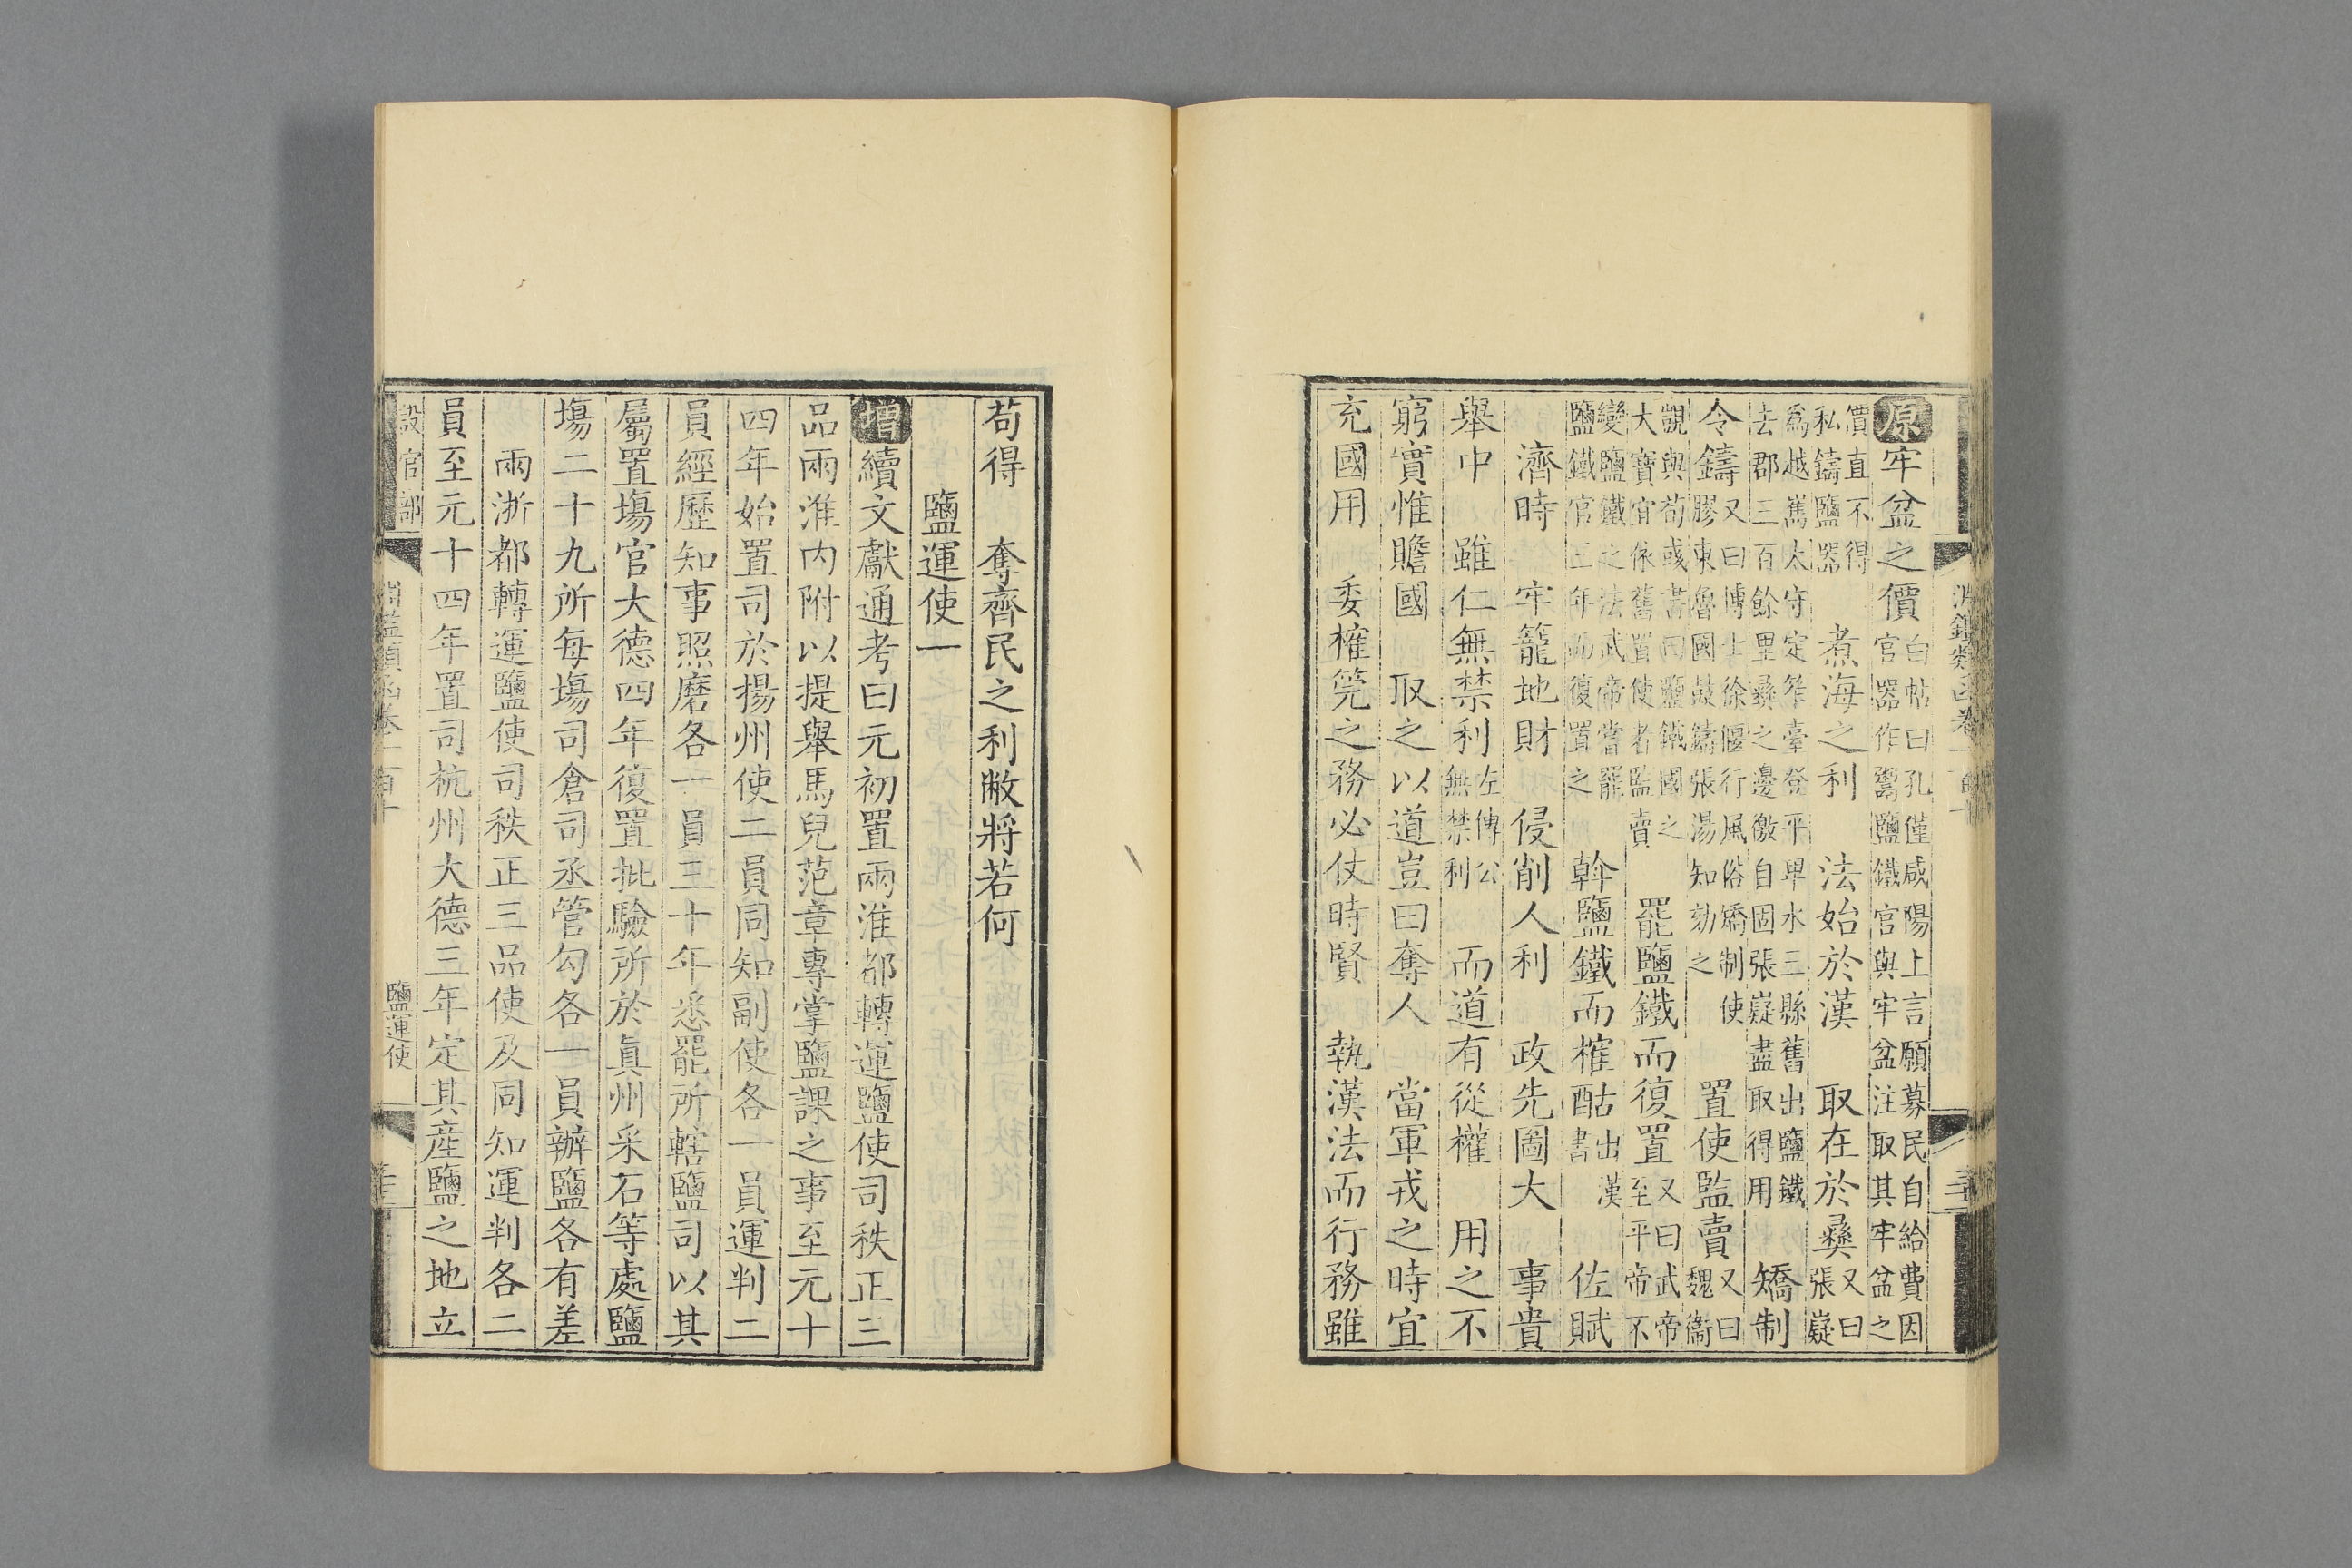 原牢盆之價白帖曰孔僅咸陽上言願募民自給費因官器作鬻鹽鐵官與牢盆注取其牢盆之
價直不得私鑄鹽器 煮海之利 法始於漢 取在於彝又曰張嶷
為越嶲太守定筰臺登平卑水三縣舊出鹽鐵去郡三百餘里彝之邊徼自固張嶷盡取得用 矯制
令鑄又曰博士徐偃行風俗矯制使膠東魯國鼓鑄張湯知劾之 置使監賣又曰魏衞
覬與荀彧書曰鹽鐵國之大寶宜依舊置使者監賣 罷鹽鐵而復置又曰武帝至平帝不
變鹽鐵之法武帝嘗罷鹽鐵官三年而復置之 幹鹽鐵而榷酤出漢書 佐賦
濟時 牢籠地財 侵削人利 政先圖大 事貴
舉中 雖仁無禁利左傳公無禁利 而道有從權 用之不
窮實惟贍國 取之以道豈曰奪人 當軍戎之時宜
充國用 委榷筦之務必仗時賢 執漢法而行務雖
苟得 奪齊民之利敝將若何
鹽運使一
增續文獻通考曰元初置兩淮都轉運鹽使司秩正三
品兩淮內附以提舉馬兒范章專掌鹽課之事至元十
四年始置司於揚州使二員同知副使各一員運判二
員經歷知事照磨各一員三十年悉罷所轄鹽司以其
屬置塲官大德四年復置批驗所於眞州采石等處鹽
塲二十九所每塲司倉司丞管勾各一員辦鹽各有差
兩浙都轉運鹽使司秩正三品使及同知運判各二
員至元十四年置司杭州大德三年定其産鹽之地立
設官部
鹽運使